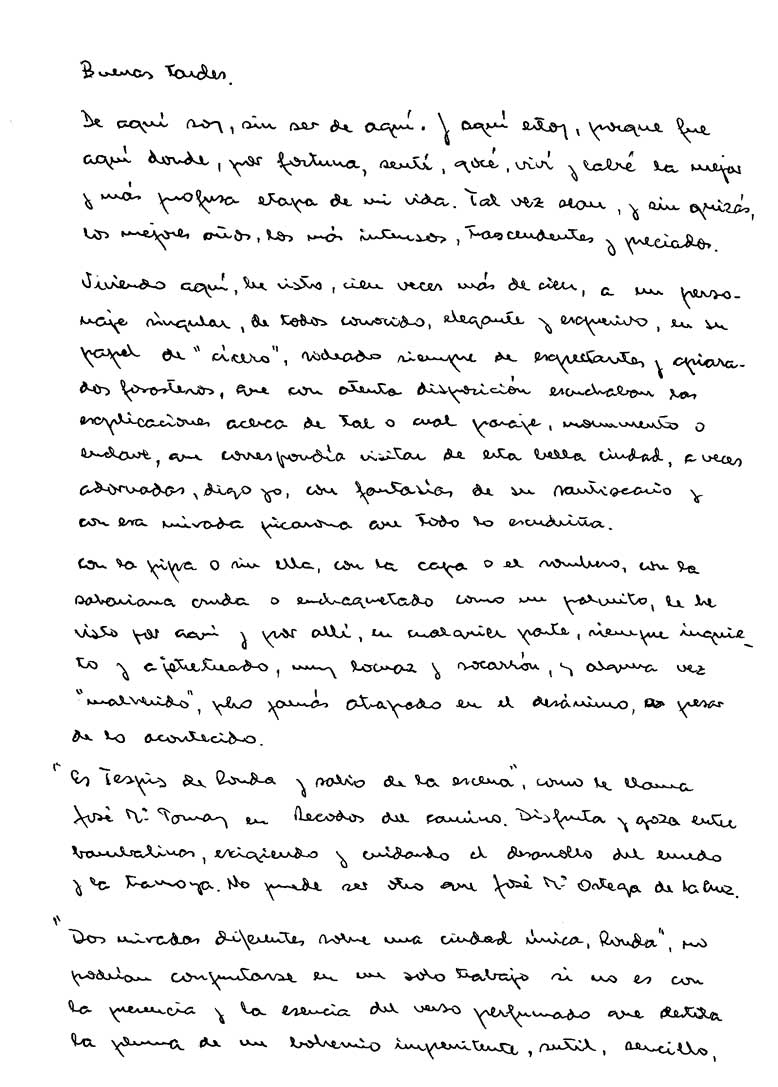 Buenas Tardes.
De aquí soy, sin ser de aquí. Y aquí estoy, porque fue
aquí donde, por fortuna, sentí, gocé, viví y labré la mejor
y más profusa etapa de mi vida. Tal vez sean, y sin quizás,
los mejores años, los más intensos, trascendentes y preciados.
Viviendo aquí, he visto, cien veces más de cien, a un perso-
naje singular, de todos conocido, elegante y esquivo, en su
papel de "cícero", rodeado siempre de expectantes y apiara-
dos forasteros, que con atenta disposición escuchaban las
explicaciones acerca de tal o cual paraje, monumento o
enclave, que correspondía visitar de esta bella ciudad, a veces
adornadas, digo yo, con fantasías de su santiscario y
con esa mirada picarona que todo lo escudriña.
Con la pipa o sin ella, con la capa o el sombrero, con la
sahariana cruda o enchaquetado como un palmito, le he
visto por aquí y por allí, en cualquier parte, siempre inquie-
to y ajetreteado, muy locuaz y socarrón, y alguna vez
"malherido", pero jamás atrapado en el desánimo, a pesar
de lo acontecido.
"Es Tespis de Ronda y sabio de la escena", como le llama
José Mª Tornay en Recodos del camino. Disfruta y goza entre
bambalinas, exigiendo y cuidando el desarrollo del enredo
y la tramoya. No puede ser otro que José Mª Ortega de la Cruz.
"Dos miradas diferentes sobre una ciudad única, Ronda", no
podrían conjuntarse en un solo trabajo si no es con
la presencia y la esencia del verso perfumado que destila
la pluma de un bohemio impenitente, sutil, sencillo,